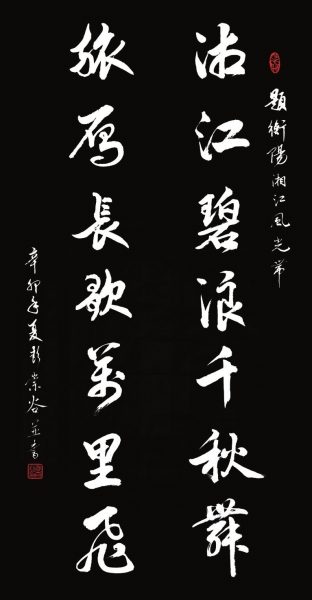 題衡陽湘江風光帶
湘江碧浪千秋舞
旅雁長歌萬里飛
辛卯年夏彭崇谷並書